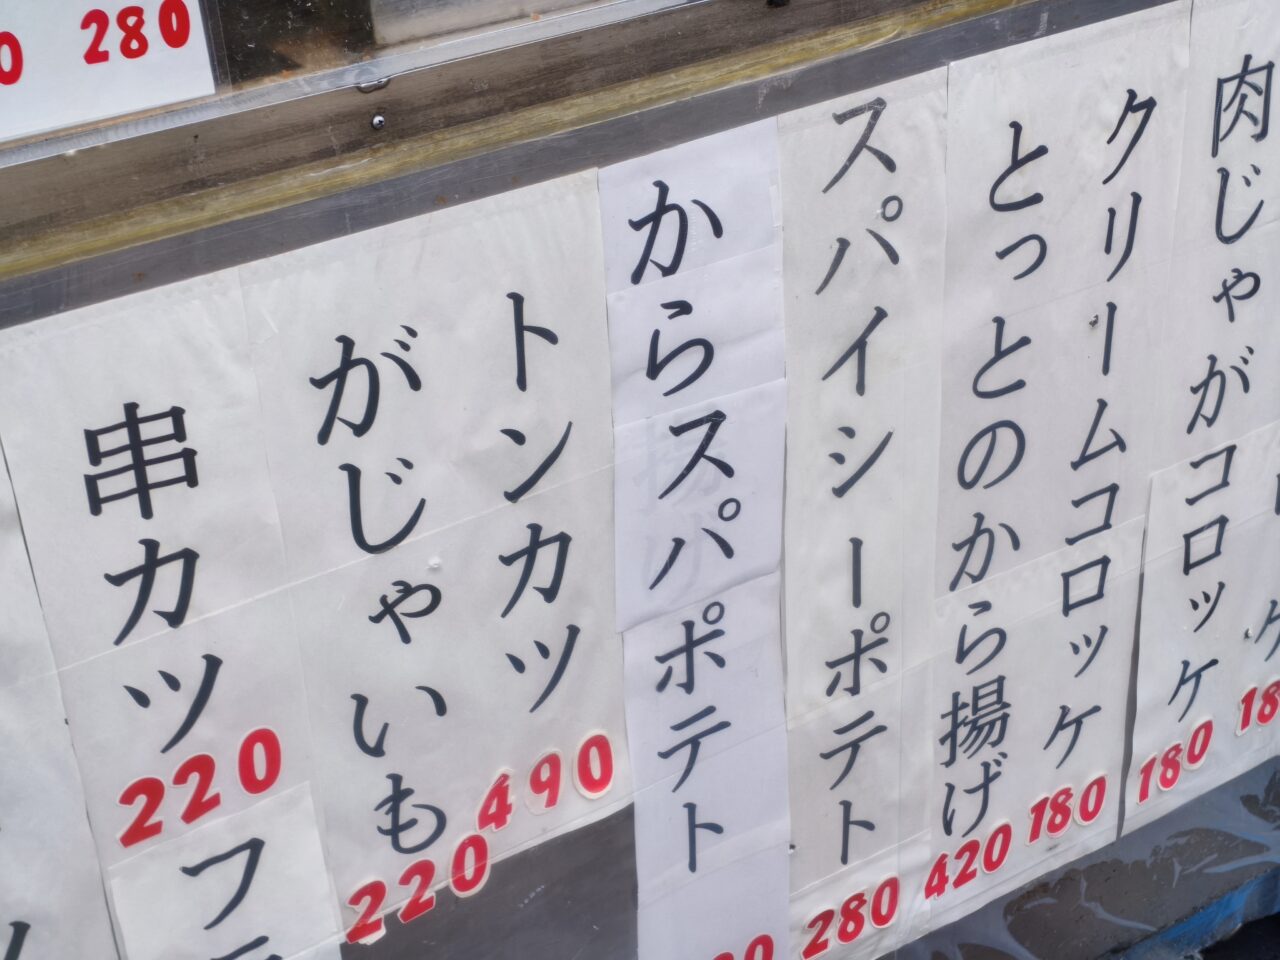 280
肉じゃがコロッケ
180
クリームコロッケ
180
とっとのから揚げ
420
スパイシーポテト
280
からスパポテト
トンカツ
490
がじゃいも
220
串カツ
220